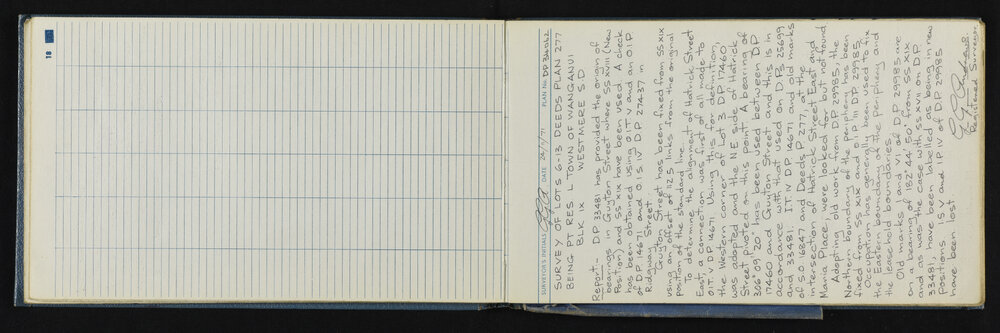 18
SURVEYOR'S INITIALS DATE 24/11/71 PLAN No. DP
SURVEY OF LOTS 6-13 DEEDS PLAN 277
BEING PT RES L TOWN OF WANGANUI
BLK IX WESTMERE S D
Report:- DP 33481 has provided the origin of
bearings in Guyton Street where SS XVIII (New
Position) and SS XIX have been used. A check
has been obtained using OIT V and an OIP
of DP 14671 and O.I.S IV DP 27437 in
Ridgway Street
Guyton Street has been fixed from SS XIX
using an offset of 112.5 links from the original
position of the standard line.
To determine the alignment of Hatrick Street
East, a connection was first of all made to
OIT V DP 14671. Using this for definition,
the Western corner of Lot 3 DP 17460
was adopted and the NE side of Hatrick
Street pivoted on this point. A bearing of
306° 09' 20" has been used between DP
17460 and Guyton Street and this is in
accordance with that used on DPs 25699
and 33481. IT IV DP 14671 and old marks
of S.O 16847 and Deeds P 277, at the
intersection of Hatrick Street East and
Maria Place were looked for but not found
Adopting old work from DP 29985, the
Northern boundary of the periphery has been
fixed from SS XIX and OIP II DP 29985.
Occupation has generally been used to fix
the Eastern boundary of the periphery and
the leasehold boundaries.
Old marks I and VI of DP 29985 are
on a bearing of 182° 44' 50" from SS XIX
and as was the case with SS XVII on DP
33481, have been labelled as being in new
positions. IS V and IP IV of DP 29985
have been lost
Registered Surveyor